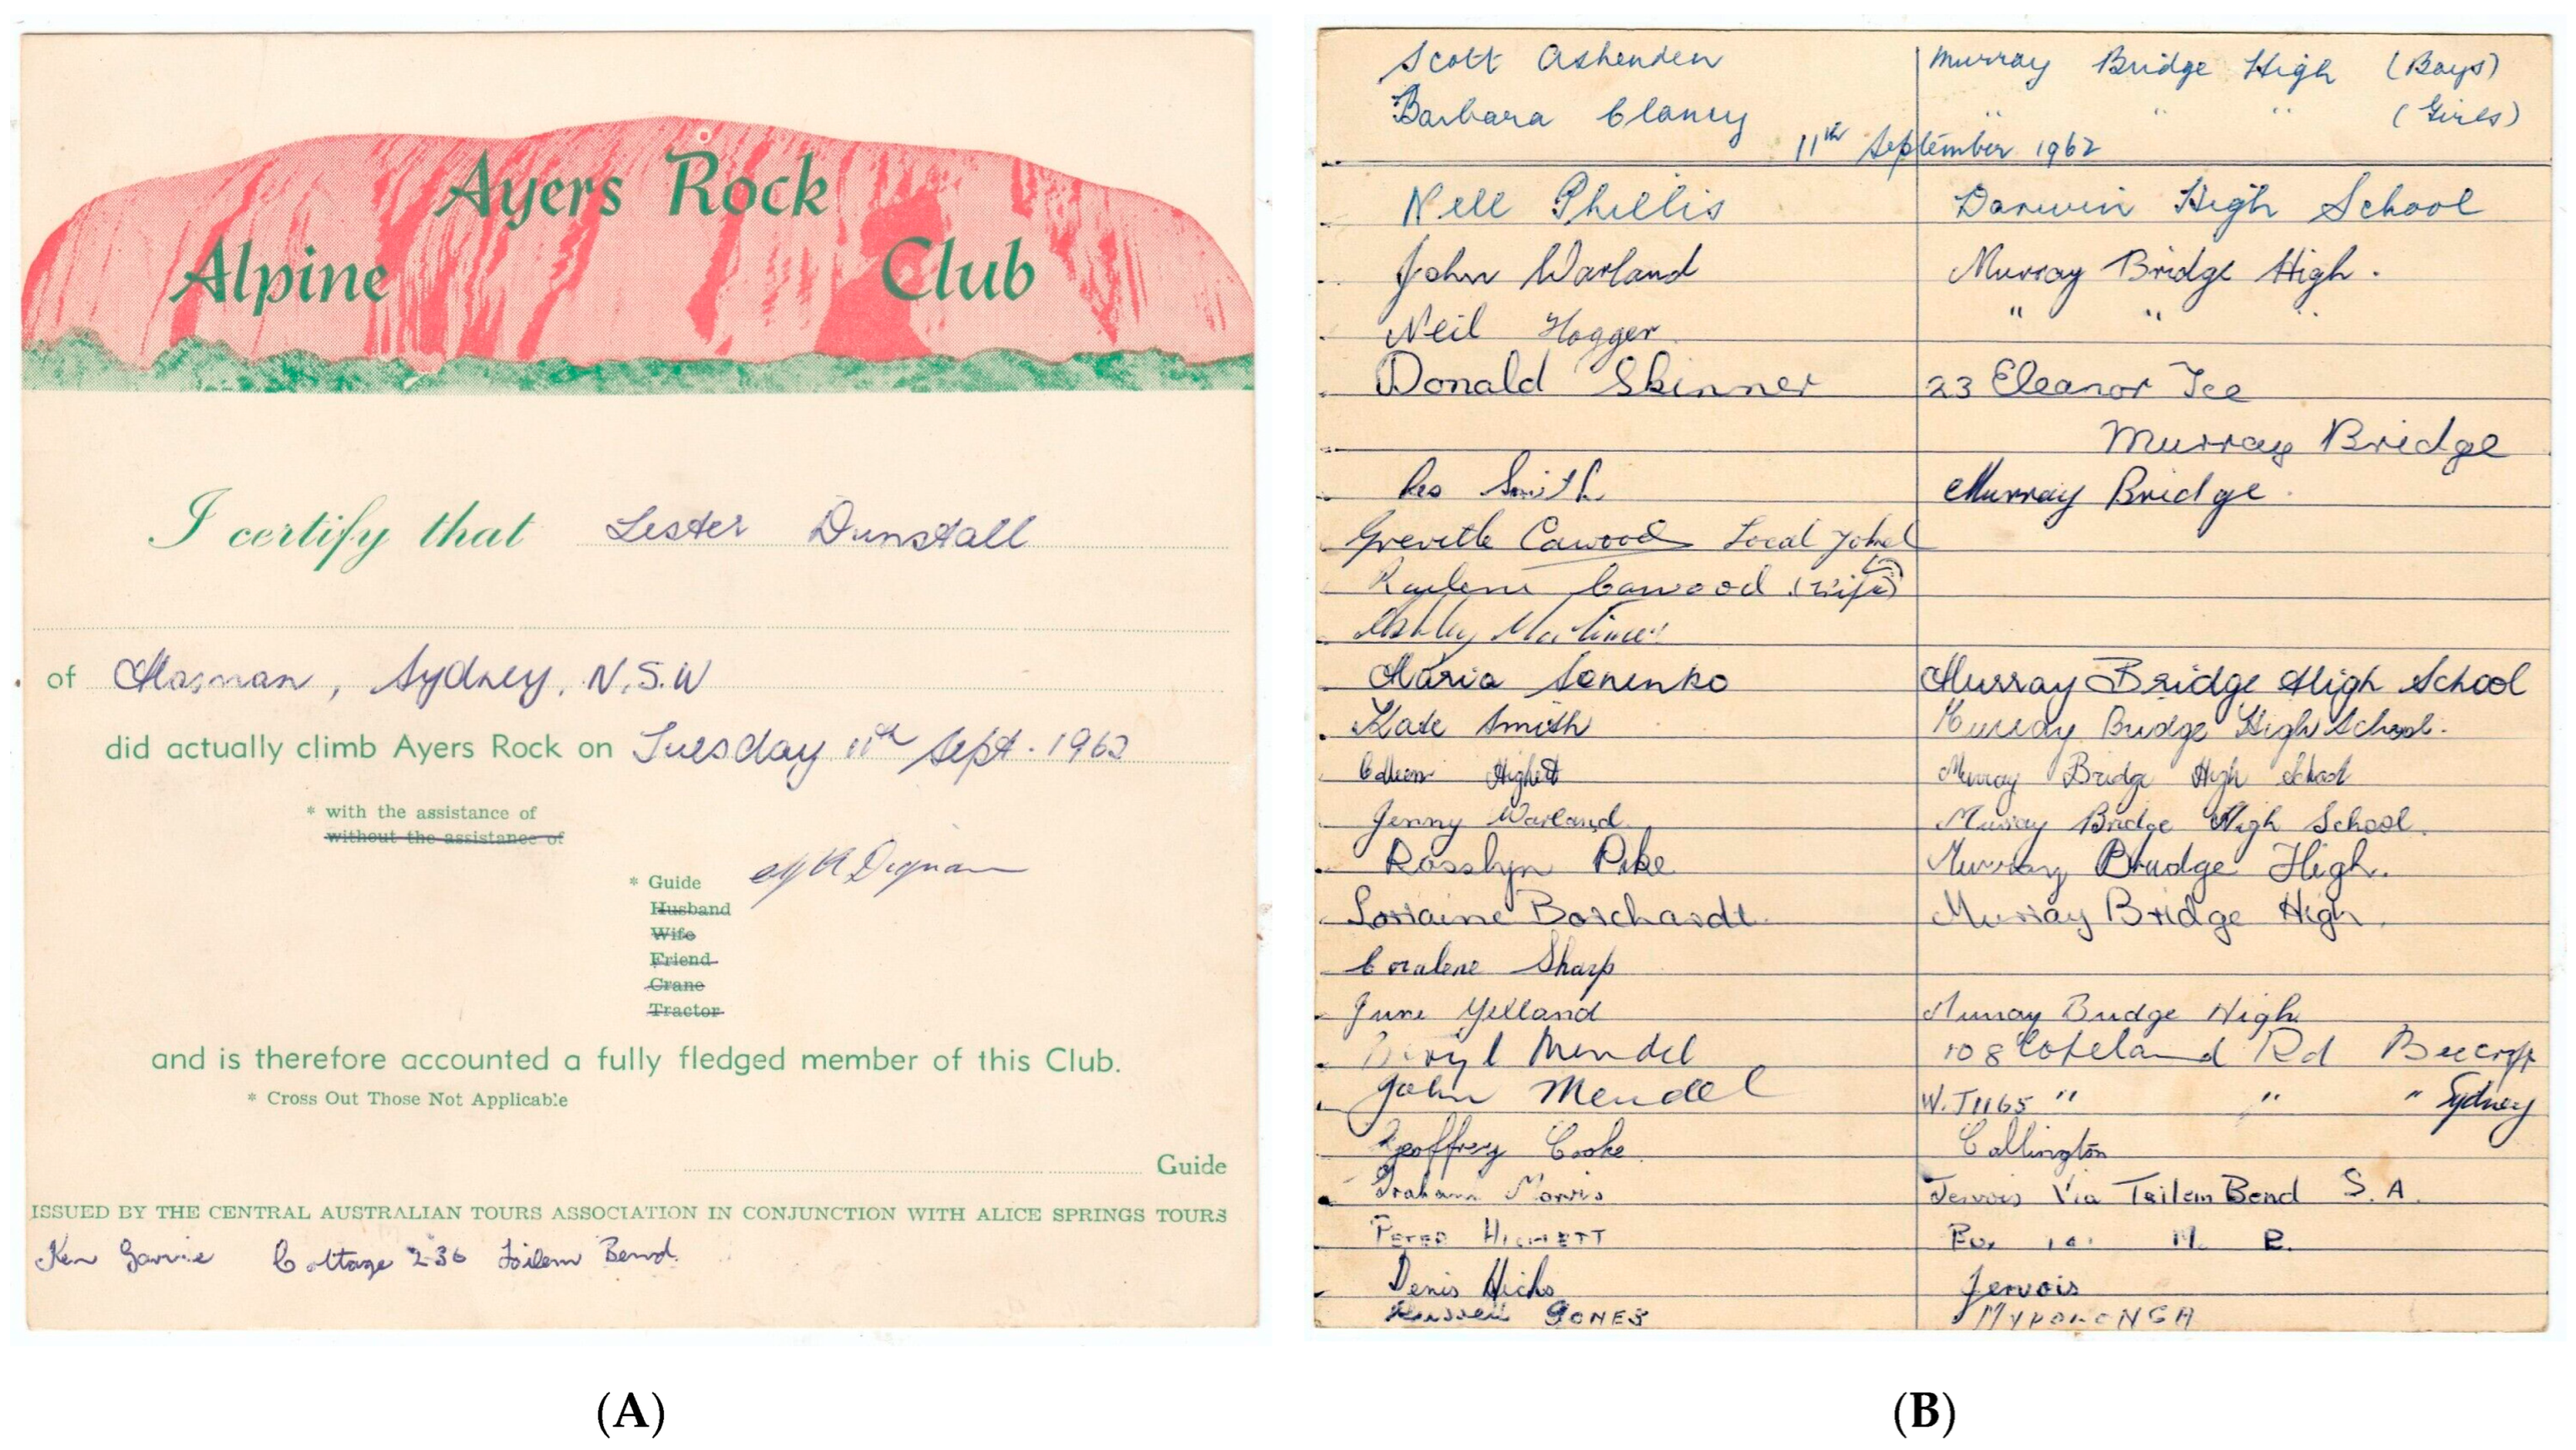 Ayers Rock
Alpine Club
I certify that Lester Dunstall
of Mosman, Sydney, N.S.W
did actually climb Ayers Rock on Tuesday 11th Sept. 1962
* with the assistance of
without the assistance of
* Guide
Husband
Wife
Friend
Crane
Tractor
and is therefore accounted a fully fledged member of this Club.
* Cross Out Those Not Applicable
Guide
ISSUED BY THE CENTRAL AUSTRALIAN TOURS ASSOCIATION IN CONJUNCTION WITH ALICE SPRINGS TOURS
Ken Cottage 236 Tailem Bend.
(A)
Scott Ashenden Murray Bridge High (Boys)
Barbara Clancy " " " (Girls)
11th September 1962
Nell Phillis Darwin High School
John Warland Murray Bridge High.
Neil Hogger " " "
Donald Skinner 23 Eleanor Tce
Murray Bridge
Smith Murray Bridge.
Greville Cawood Local Yokel
Cawood (wife)
Ashley
Maria Senenko Murray Bridge High School
Kate Smith Murray Bridge High School.
Highett Murray Bridge High School
Jenny Warland Murray Bridge High School.
Rosslyn Pike Murray Bridge High.
Lorraine Borchardt Murray Bridge High.
Coralene Sharp
June Yelland Murray Bridge High
Beryl Mendel 108 Copeland Rd Beecroft
John Mendel W.J1165 " " " Sydney
Geoffrey Cooke Callington
Graham Morris Jervois Via Tailem Bend S.A.
PETER HIGHETT
Denis Hicks Jervois
Russell JONES MYPOLONGA
(B)